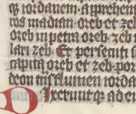 iordanem. apprehen
ros madian oreb et zeb
oreb in petra oreb zeb
lari zeb. Et persecuti
capita oreb et zeb por
deon fluenta iorda
Dixeruntq; ad e